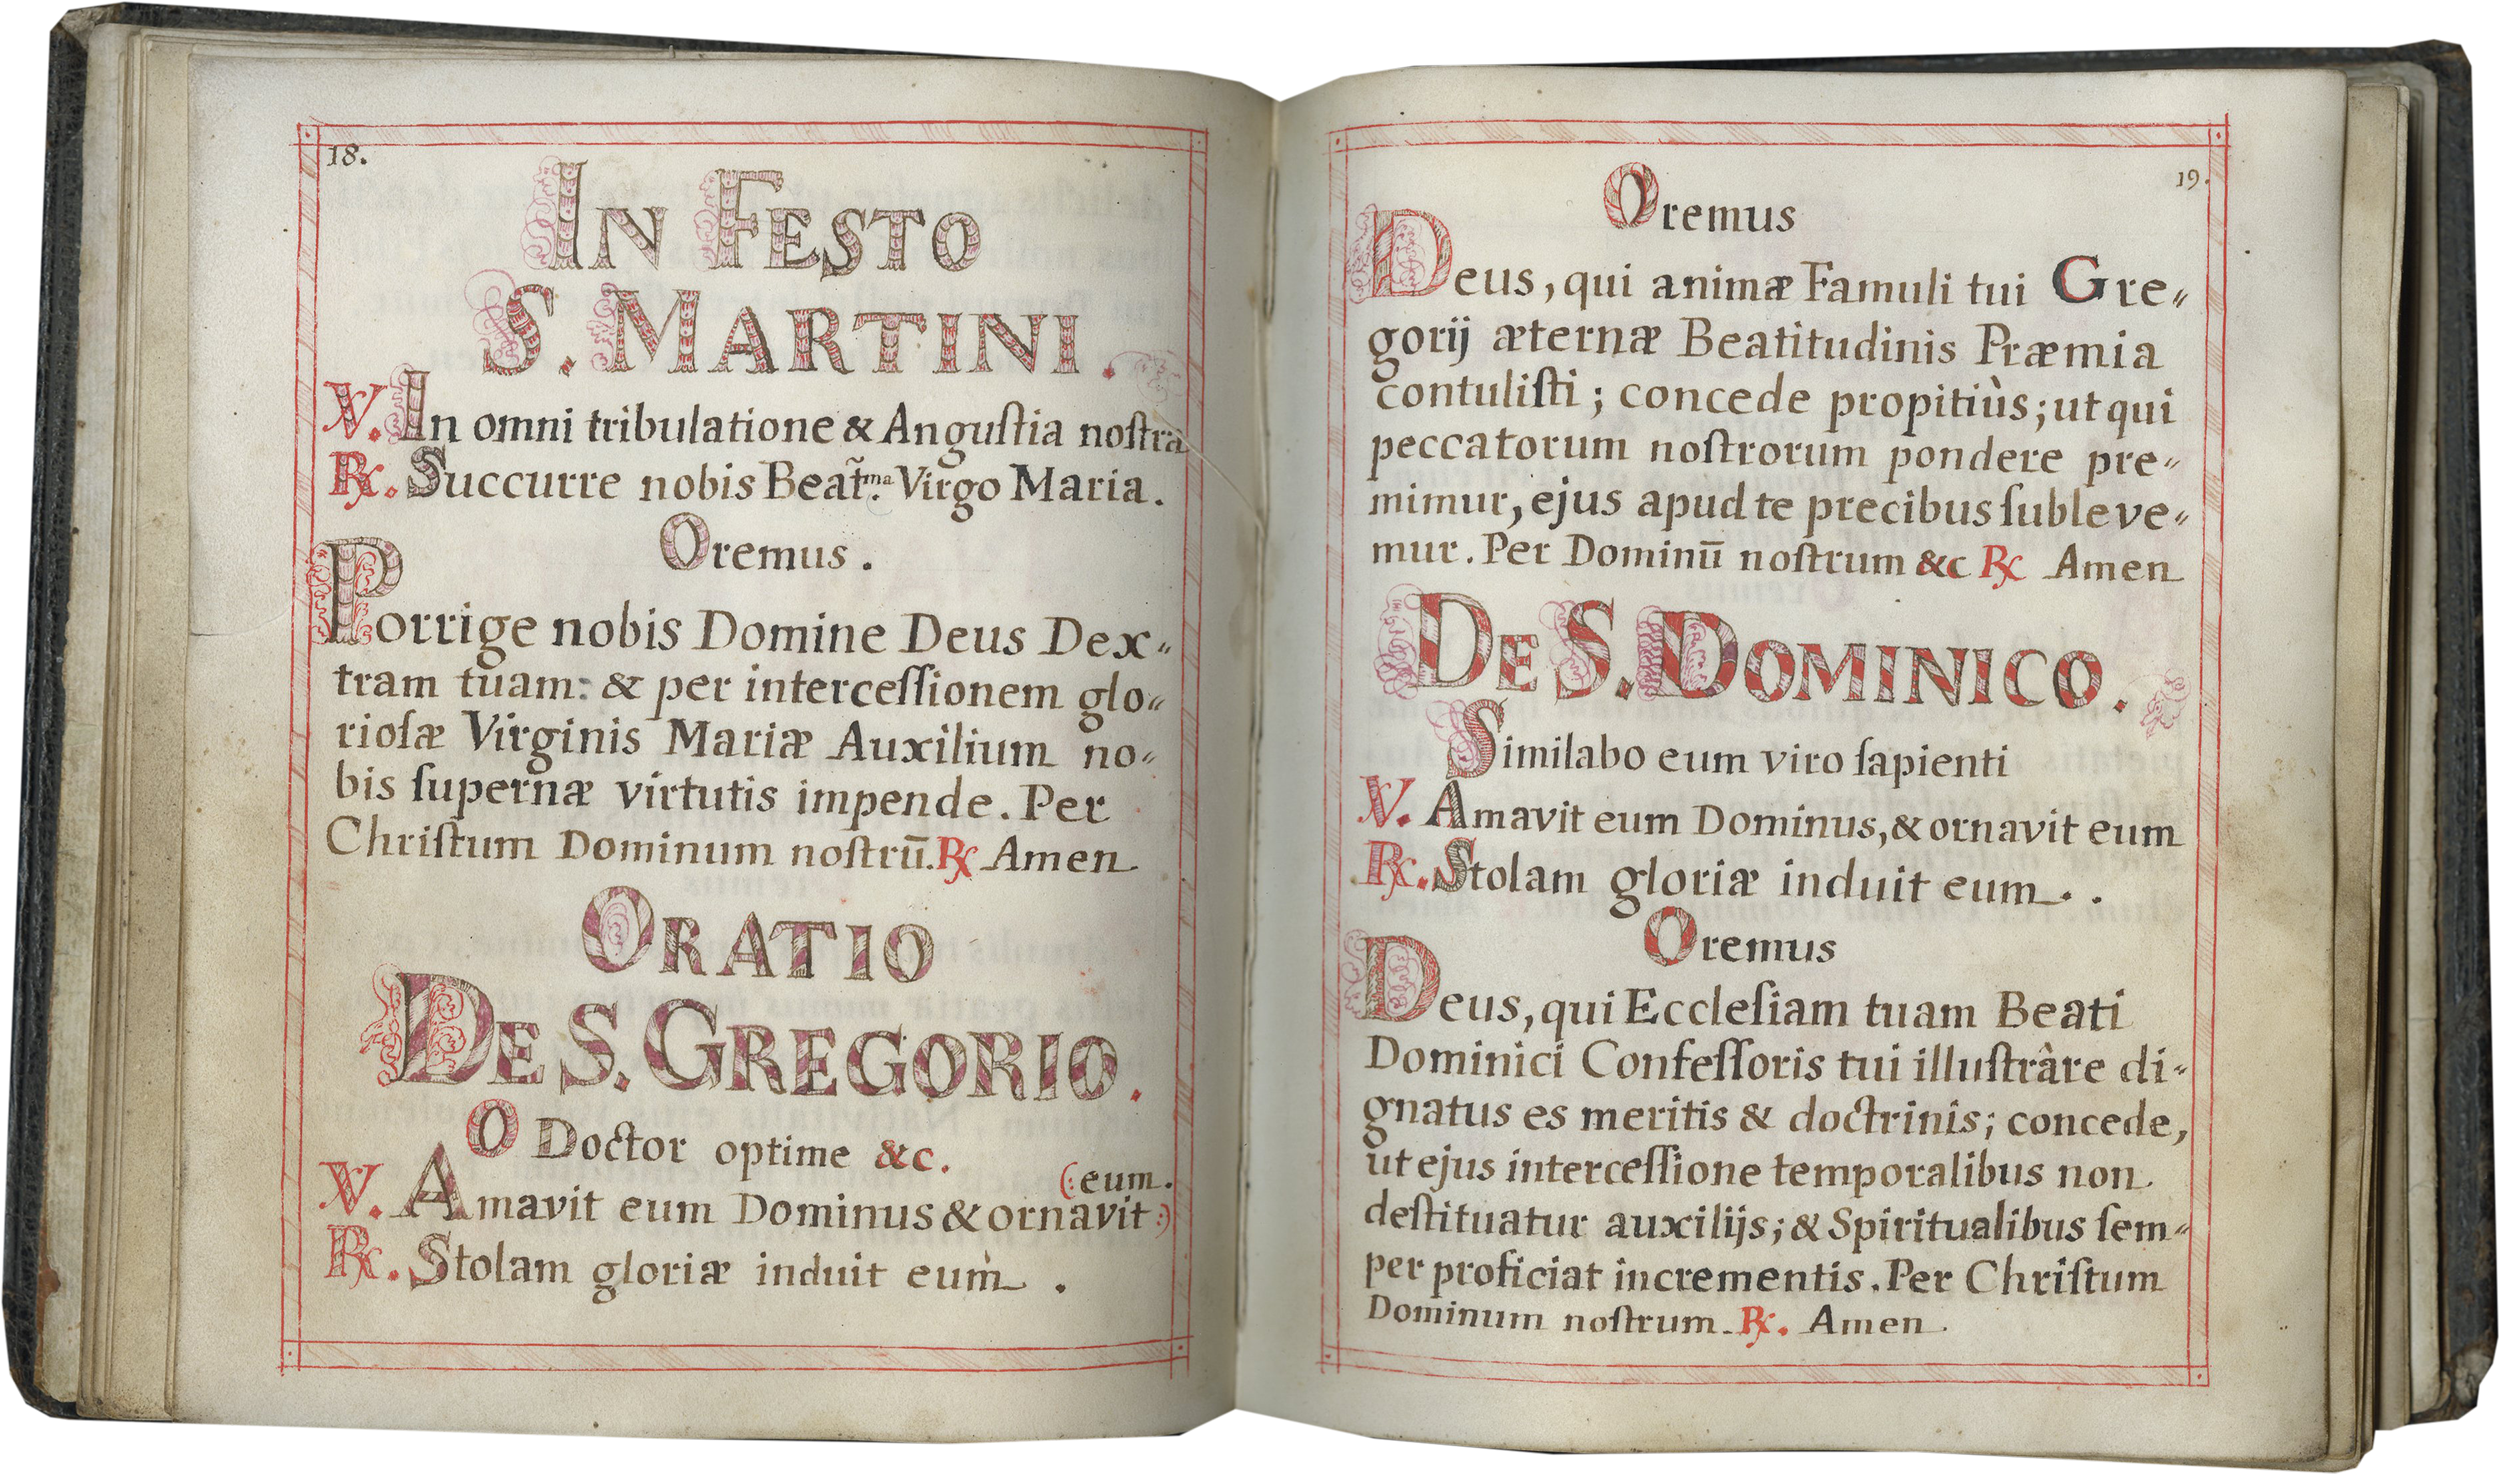 18.
In Festo
S. Martini.
V. In omni tribulatione & Anguſtia noſtrâ
℟. Succurre nobis Beat̃.ma Virgo Maria.
Oremus.
Porrige nobis Domine Deus Dex„
tram tuam: & per interceſſionem glo„
rioſæ Virginis Mariæ Auxilium no„
bis ſupernæ virtutis impende. Per
Chriſtum Dominum noſtrū. ℟ Amen
Oratio
De S. Gregorio.
O Doctor optime &c.
(: eum.
V. Amavit eum Dominus & ornavit :)
℟. Stolam gloriæ induit eum .
19.
Oremus
Deus, qui animæ Famuli tui Gre„
gorij æternæ Beatitudinis Præmia
contuliſti; concede propitiùs; ut qui
peccatorum noſtrorum pondere pre„
mimur, ejus apud te precibus ſubleve„
mur. Per Dominū noſtrum &c ℟ Amen
De S. Dominico.
Similabo eum viro ſapienti
V. Amavit eum Dominus, & ornavit eum
℟. Stolam gloriæ induit eum. .
Oremus
Deus, qui Eccleſiam tuam Beati
Dominici Confeſſoris tui illuſtrâre di„
gnatus es meritis & doctrinis; concede,
ut ejus interceſſione temporalibus non
deſtituatur auxilijs; & Spiritualibus ſem„
per proficiat incrementis. Per Chriſtum
Dominum noſtrum. ℟. Amen